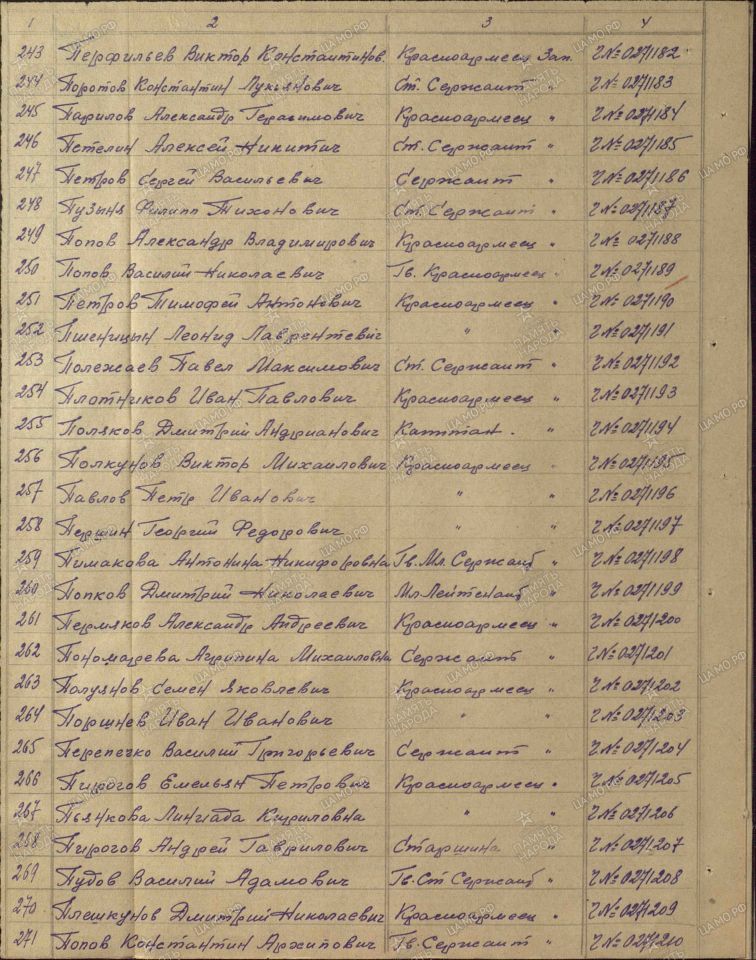 1 2 3 4
243 Перфильев Виктор Константинов. Красноармеец Зап. Ч№0271182
244 Поротов Константин Лукьянович Ст. Сержант " Ч№0271183
245 Парилов Александр Герасимович Красноармеец " Ч№0271184
246 Петелин Алексей Никитич Ст. Сержант " Ч№0271185
247 Петров Сергей Васильевич Сержант " Ч№0271186
248 Пузыня Филипп Тихонович Ст. Сержант " Ч№0271187
249 Попов Александр Владимирович Красноармеец " Ч№0271188
250 Попов Василий Николаевич Гв. Красноармеец " Ч№0271189
251 Петров Тимофей Антонович Красноармеец " Ч№0271190
252 Пшеницын Леонид Лаврентевич " " Ч№0271191
253 Полежаев Павел Максимович Ст. Сержант " Ч№0271192
254 Плотников Иван Павлович Красноармеец " Ч№0271193
255 Поляков Дмитрий Андрианович Капитан. " Ч№0271194
256 Полкунов Виктор Михаилович Красноармеец " Ч№0271195
257 Павлов Петр Иванович " " Ч№0271196
258 Першин Георгий Федорович " " Ч№0271197
259 Пимакова Антонина Никифоровна Гв. Мл. Сержант " Ч№0271198
260 Попков Дмитрий Николаевич Мл. Лейтенант " Ч№0271199
261 Пермяков Александр Андреевич Красноармеец " Ч№0271200
262 Пономарева Агрипина Михаиловна Сержант " Ч№0271201
263 Полуянов Семен Яковлевич Красноармеец " Ч№0271202
264 Поршнев Иван Иванович " " Ч№0271203
265 Перепечко Василий Григорьевич Сержант " Ч№0271204
266 Пирогов Емельян Петрович Красноармеец " Ч№0271205
267 Пьянкова Кириловна " " Ч№0271206
268 Пирогов Андрей Гаврилович Старшина " Ч№0271207
269 Пудов Василий Адамович Гв. Ст Сержант " Ч№0271208
270 Плешкунов Дмитрий Николаевич Красноармеец " Ч№0271209
271 Попов Константин Архипович Гв. Сержант " Ч№0271210